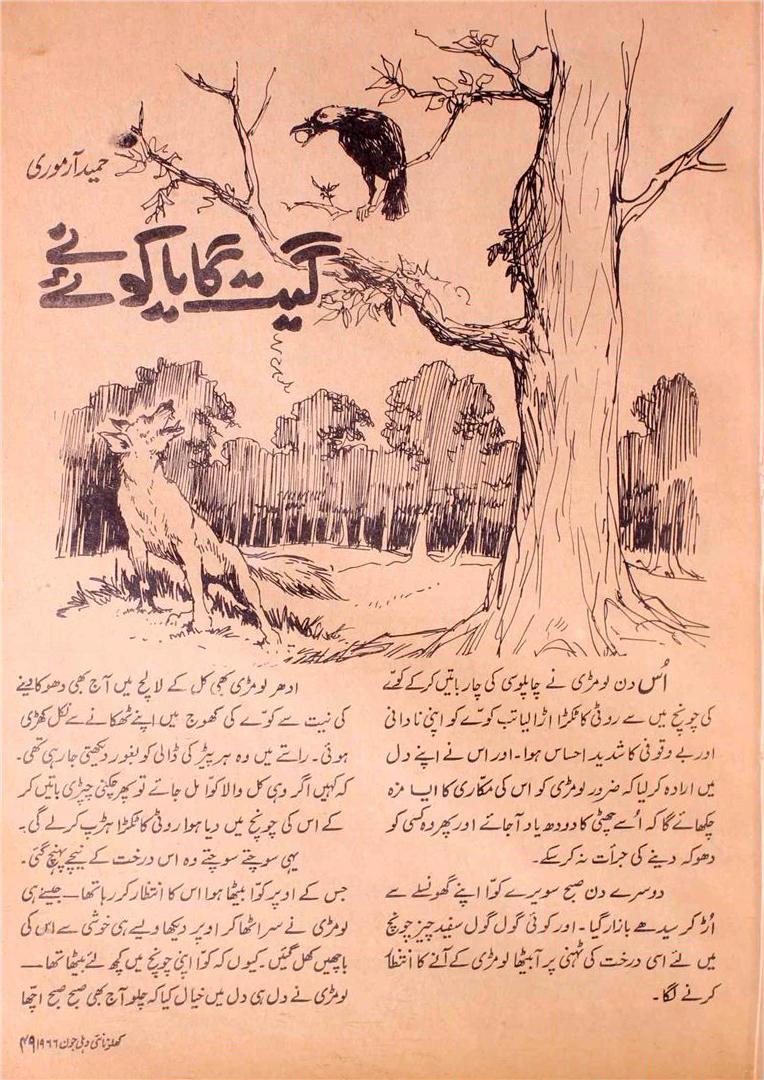 حمید آرموری
گیت گایا کوّے نے
اُس دن لومڑی نے چاپلوسی کی چار باتیں کرکے کوّے
کی چونچ میں سے روٹی کا ٹکڑا اڑا لیا تب کوّے کو اپنی نادانی
اور بے وقوفی کا شدید احساس ہوا۔ اور اس نے اپنے دل
میں ارادہ کرلیا کہ ضرور لومڑی کو اس کی مکّاری کا ایسا مزہ
چکھائے گا کہ اُسے چھٹی کا دودھ یاد آجائے اور پھر وہ کسی کو
دھوکہ دینے کی جرأت نہ کرسکے۔
دوسرے دن صبح سویرے کوّا اپنے گھونسلے سے
اُڑ کر سیدھے بازار گیا۔ اور کوئی گول گول سفید چیز چونچ
میں لئے اسی درخت کی ٹہنی پر آبیٹھا لومڑی کے آنے کا انتظار
کرنے لگا۔
ادھر لومڑی بھی کل کے لالچ میں آج بھی دھوکا دینے
کی نیت سے کوّے کی کھوج میں اپنے ٹھکانے سے نکل کھڑی
ہوئی۔ راستے میں وہ ہر پیڑ کی ڈالی کو بغور دیکھتی جارہی تھی۔
کہ کہیں اگر وہی کل والا کوّا مل جائے تو پھر چکنی چپڑی باتیں کر
کے اس کی چونچ میں دبا ہوا روٹی کا ٹکڑا ہڑپ کرلے گی۔
یہی سوچتے سوچتے وہ اس درخت کے نیچے پہنچ گئی۔
جس کے اوپر کوّا بیٹھا ہوا اس کا انتظار کررہا تھا۔ جیسے ہی
لومڑی نے سر اٹھا کر اوپر دیکھا ویسے ہی خوشی سے اس کی
باچھیں کھل گئیں۔ کیوں کہ کوّا اپنی چونچ میں کچھ لئے بیٹھا تھا۔
لومڑی نے دل ہی دل میں خیال کیا کہ چلو آج بھی صبح صبح اچھا
کھلونا نئی دہلی جون ۱۹۶۶ ۴۹